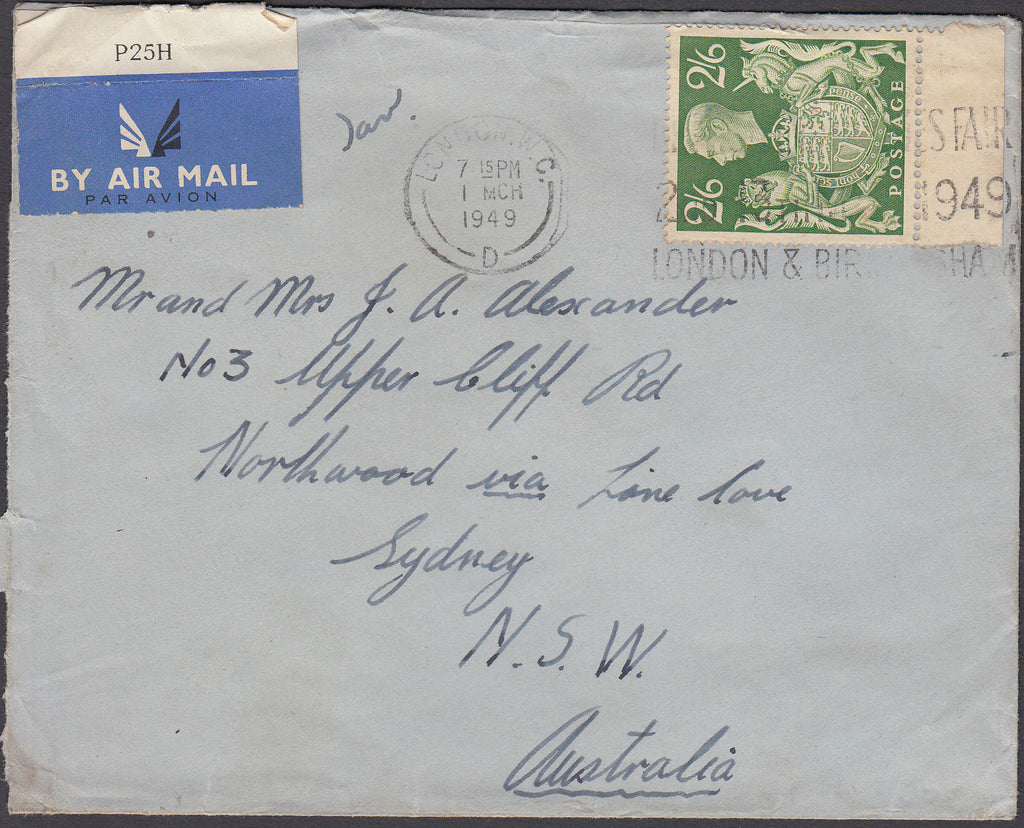 P25H
BY AIR MAIL
PAR AVION
LONDON.W.C.
7 15 PM
1 MCH
1949
D
2/6
2/6
POSTAGE
ES FAIR
1949
LONDON & BIR GHAM
Mr and Mrs J. A. Alexander
No 3 Upper Cliff Rd
Northwood via Lane Cove
Sydney
N. S. W.
Australia